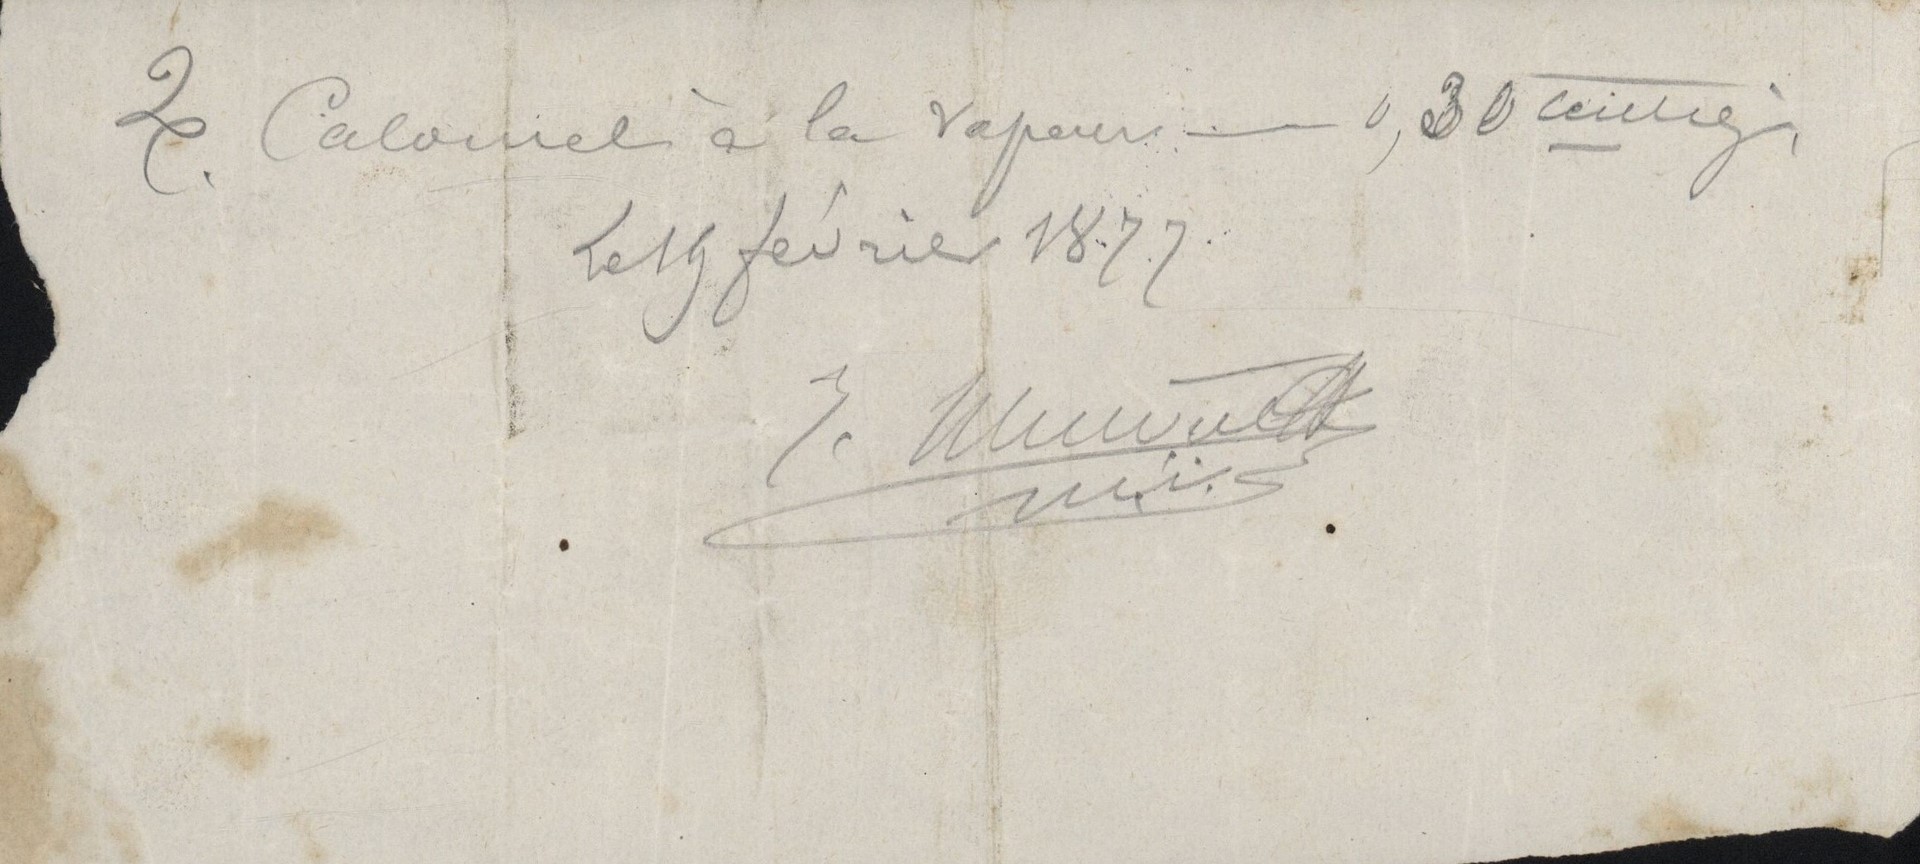 ℞. Calomel à la vapeur. — 0,30 centig.
Le 19 février 1877.